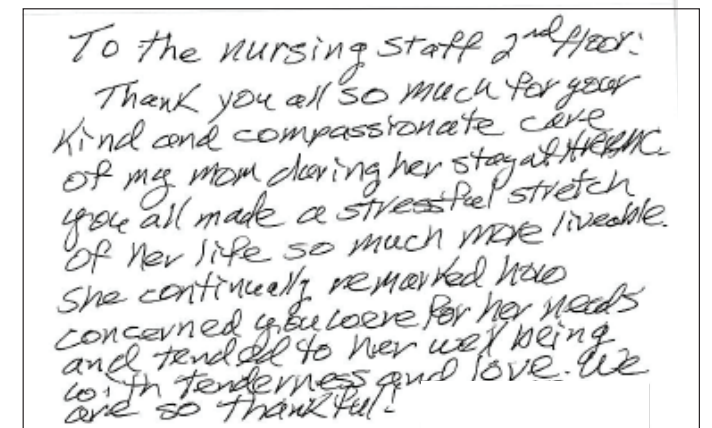 To the nursing staff 2nd floor:
Thank you all so much for your
kind and compassionate care
of my mom during her stay at HRRMC.
you all made a stressful stretch
of her life so much more liveable.
She continually remarked how
concerned you were for her needs
and tended to her well being
with tenderness and love. We
are so thankful!